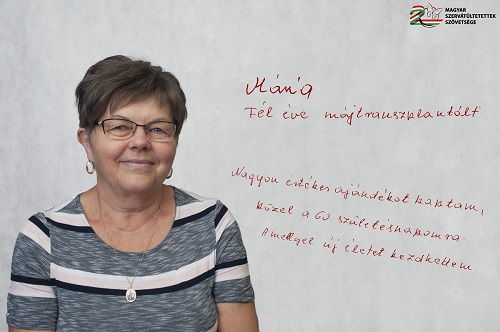 MAGYAR
SZERVÁTÜLTETETTEK
SZÖVETSÉGE
Mária
Fél éve májtranszplantált
Nagyon értékes ajándékot kaptam,
közel a 60. születésnapomra.
Amellyel új életet kezdhettem